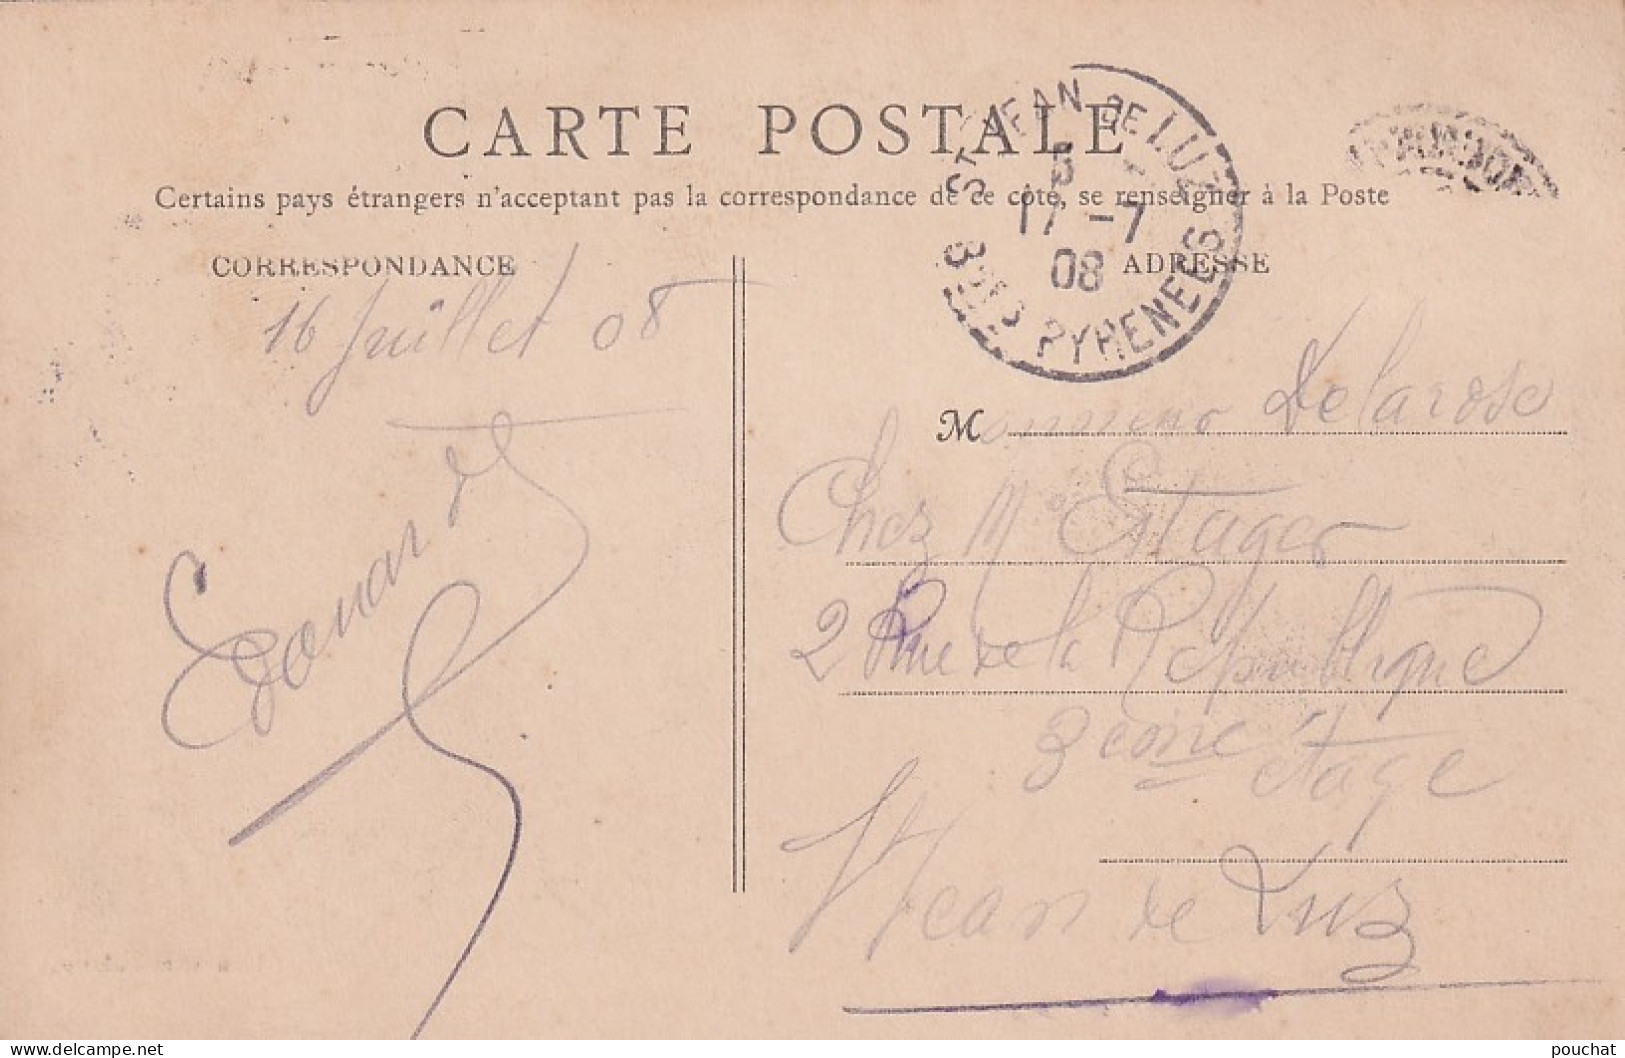 CARTE POSTALE
Certains pays étrangers n'acceptent pas la correspondance de ce côté, se renseigner à la Poste
ST JEAN DE LUZ
5
17 -7
08
BSES PYRENEES
CORRESPONDANCE
16 Juillet 08
Edouard
ADRESSE
Monsieur Delarose
Chez M Estager
2 Rue de la République
3eme étage
St Jean de Luz
delcampe.net
pouchat